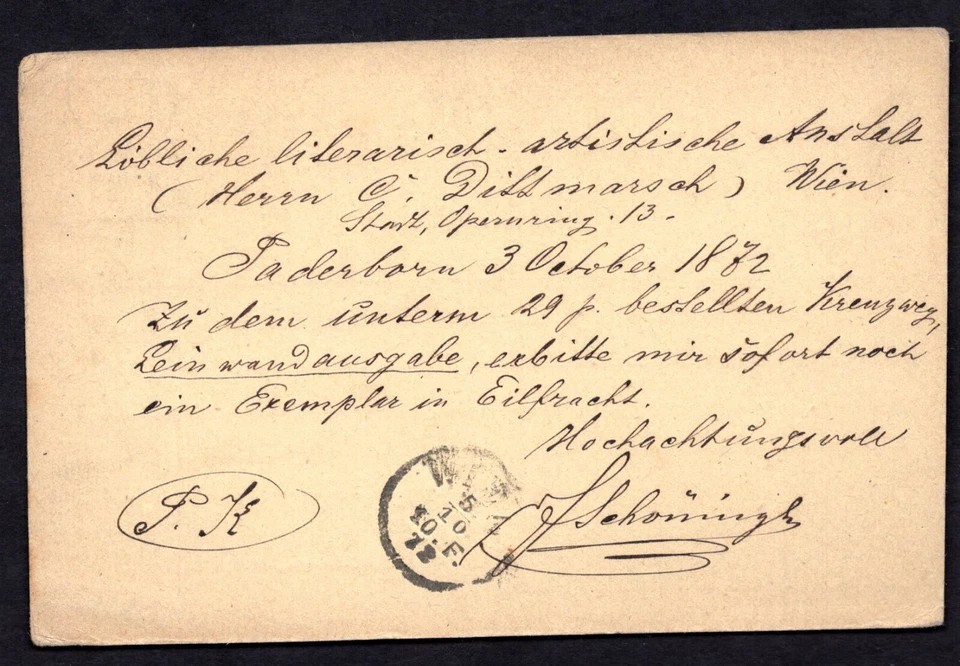 Löbliche literarisch-artistische Anstalt
(Herrn C. Dittmarsch) Wien.
Stadt, Opernring. 13.
Paderborn 3 October 1872
Zu dem unterm 29 p. bestellten Kreuzweg,
Leinwandausgabe, erbitte mir sofort noch
ein Exemplar in Eilfracht.
Hochachtungsvoll
FSchöningh
P. K
WIEN
5
10
10. F.
72